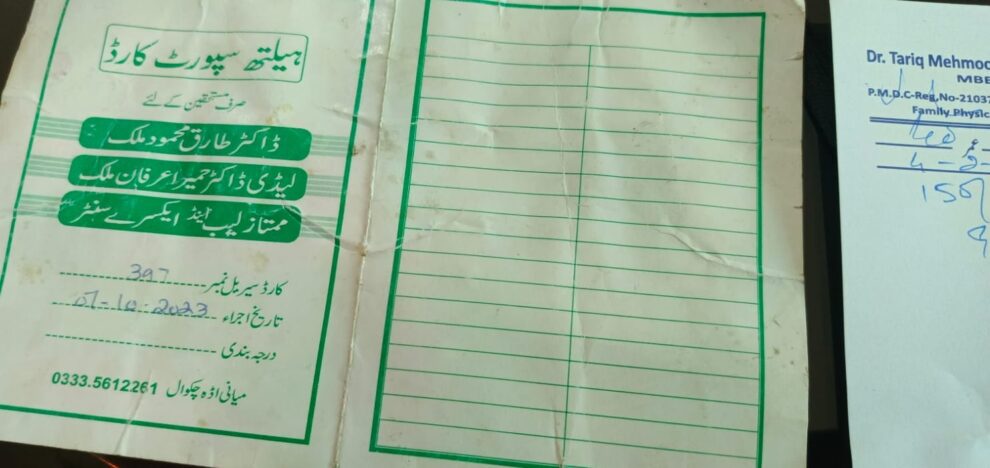 ہیلتھ سپورٹ کارڈ
صرف مستحقین کے لئے
ڈاکٹر طارق محمود ملک
لیڈی ڈاکٹر حمیرا عرفان ملک
ممتاز لیب اینڈ ایکسرے سنٹر
کارڈ سیریل نمبر 397
تاریخ اجراء 07-10-2023
درجہ بندی
میانی اڈہ چکوال 0333.5612261
Dr. Tariq Mehmoo
MBB
P.M.D.C-Reg,No-2103
Family Physic
عمر
150/